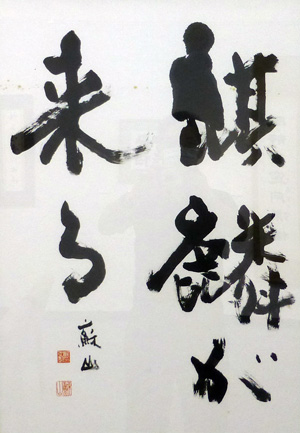 麒麟が
来る
蘇山